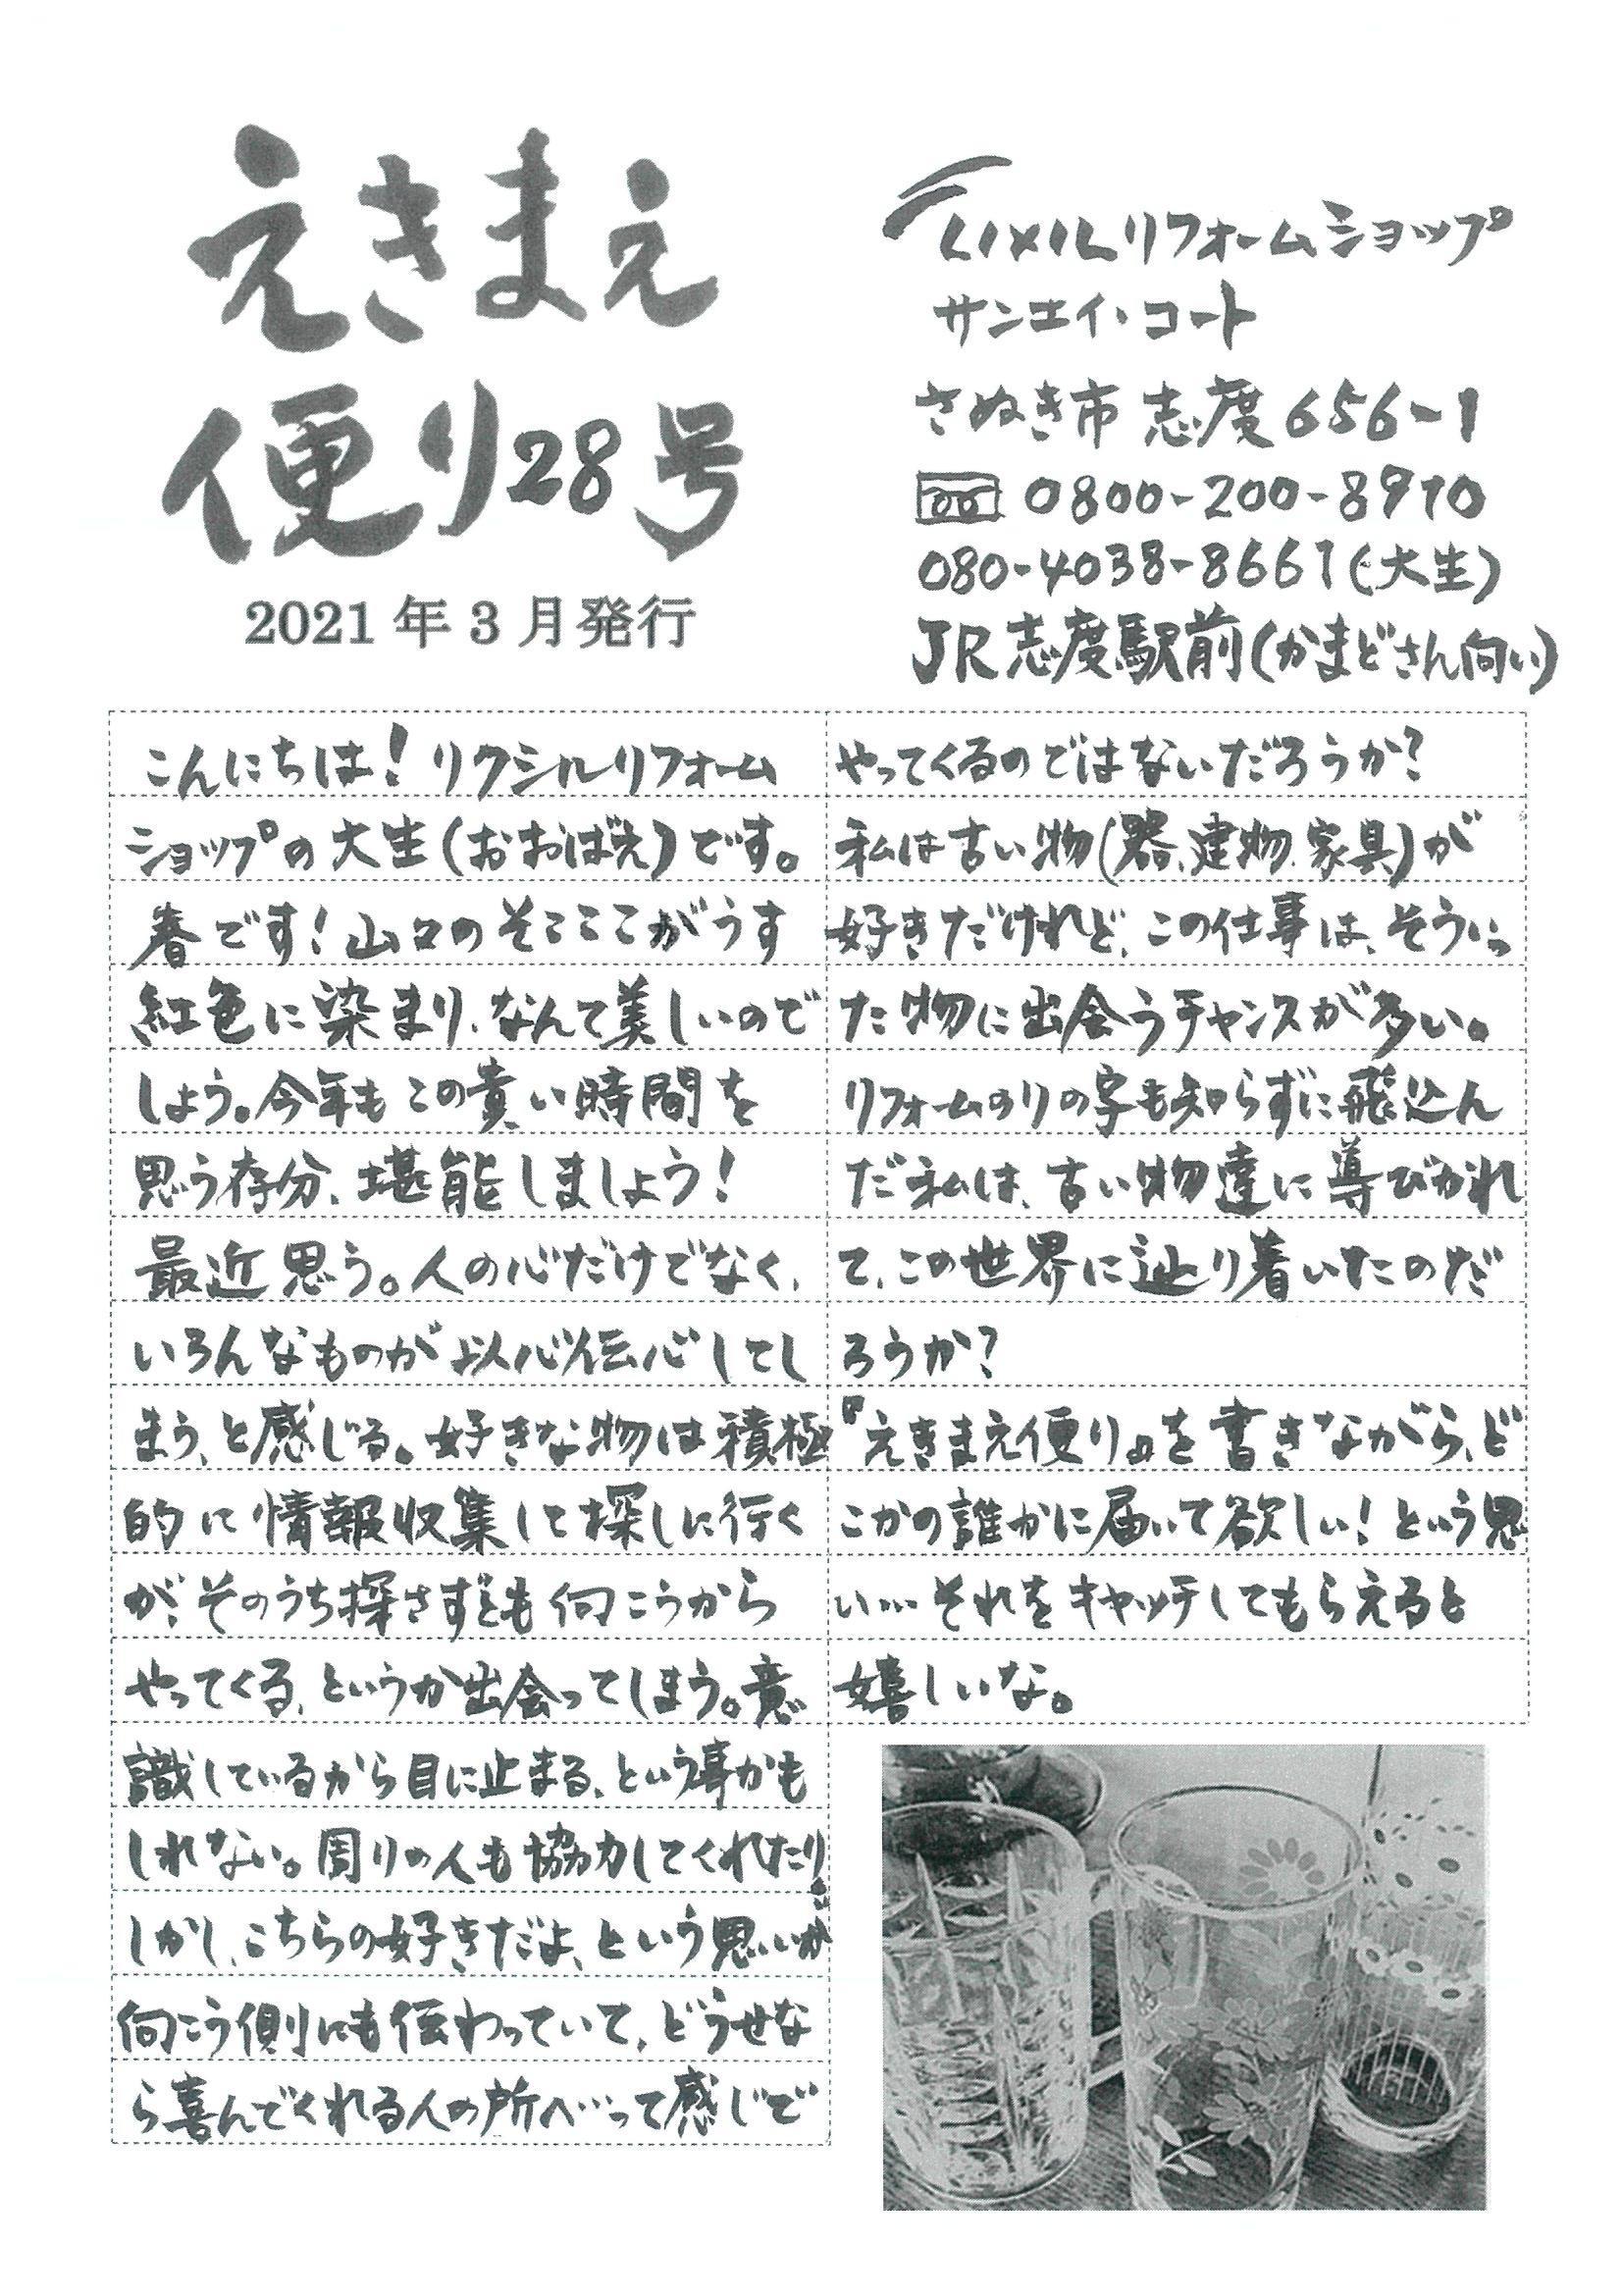 えきまえ
便り28号
2021年3月発行
LIXILリフォームショップ
サンエイ・コート
さぬき市 志度656-1
0800-200-8970
080-4038-8667(大生)
JR志度駅前(かまどさん向い)
こんにちは!リクシルリフォーム
ショップの大生(おおばえ)です。
春です!山々のそこここがうす
紅色に染まり、なんて美しいので
しょう。今年もこの貴い時間を
思う存分、堪能しましょう!
最近思う。人の心だけでなく、
いろんなものが以心伝心してし
まう、と感じる。好きな物は積極
的に情報収集して探しに行く
が、そのうち探さずとも向こうから
やってくる、というか出会ってしまう。意
識しているから目に止まる、という事かも
しれない。周りの人も協力してくれたり。
しかし、こちらの好きだよ、という思いが
向こう側にも伝わっていて、どうせな
ら喜んでくれる人の所へ…って感じで
やってくるのではないだろうか?
私は古い物(器、建物、家具)が
好きだけれど、この仕事は、そうい
った物に出会うチャンスが多い。
リフォームのリの字も知らずに飛込ん
だ私は、古い物達に導びかれ
て、この世界に辿り着いたのだ
ろうか?
『えきまえ便り』を書きながら、ど
こかの誰かに届いて欲しい!という思
い…それをキャッチしてもらえると
嬉しいな。